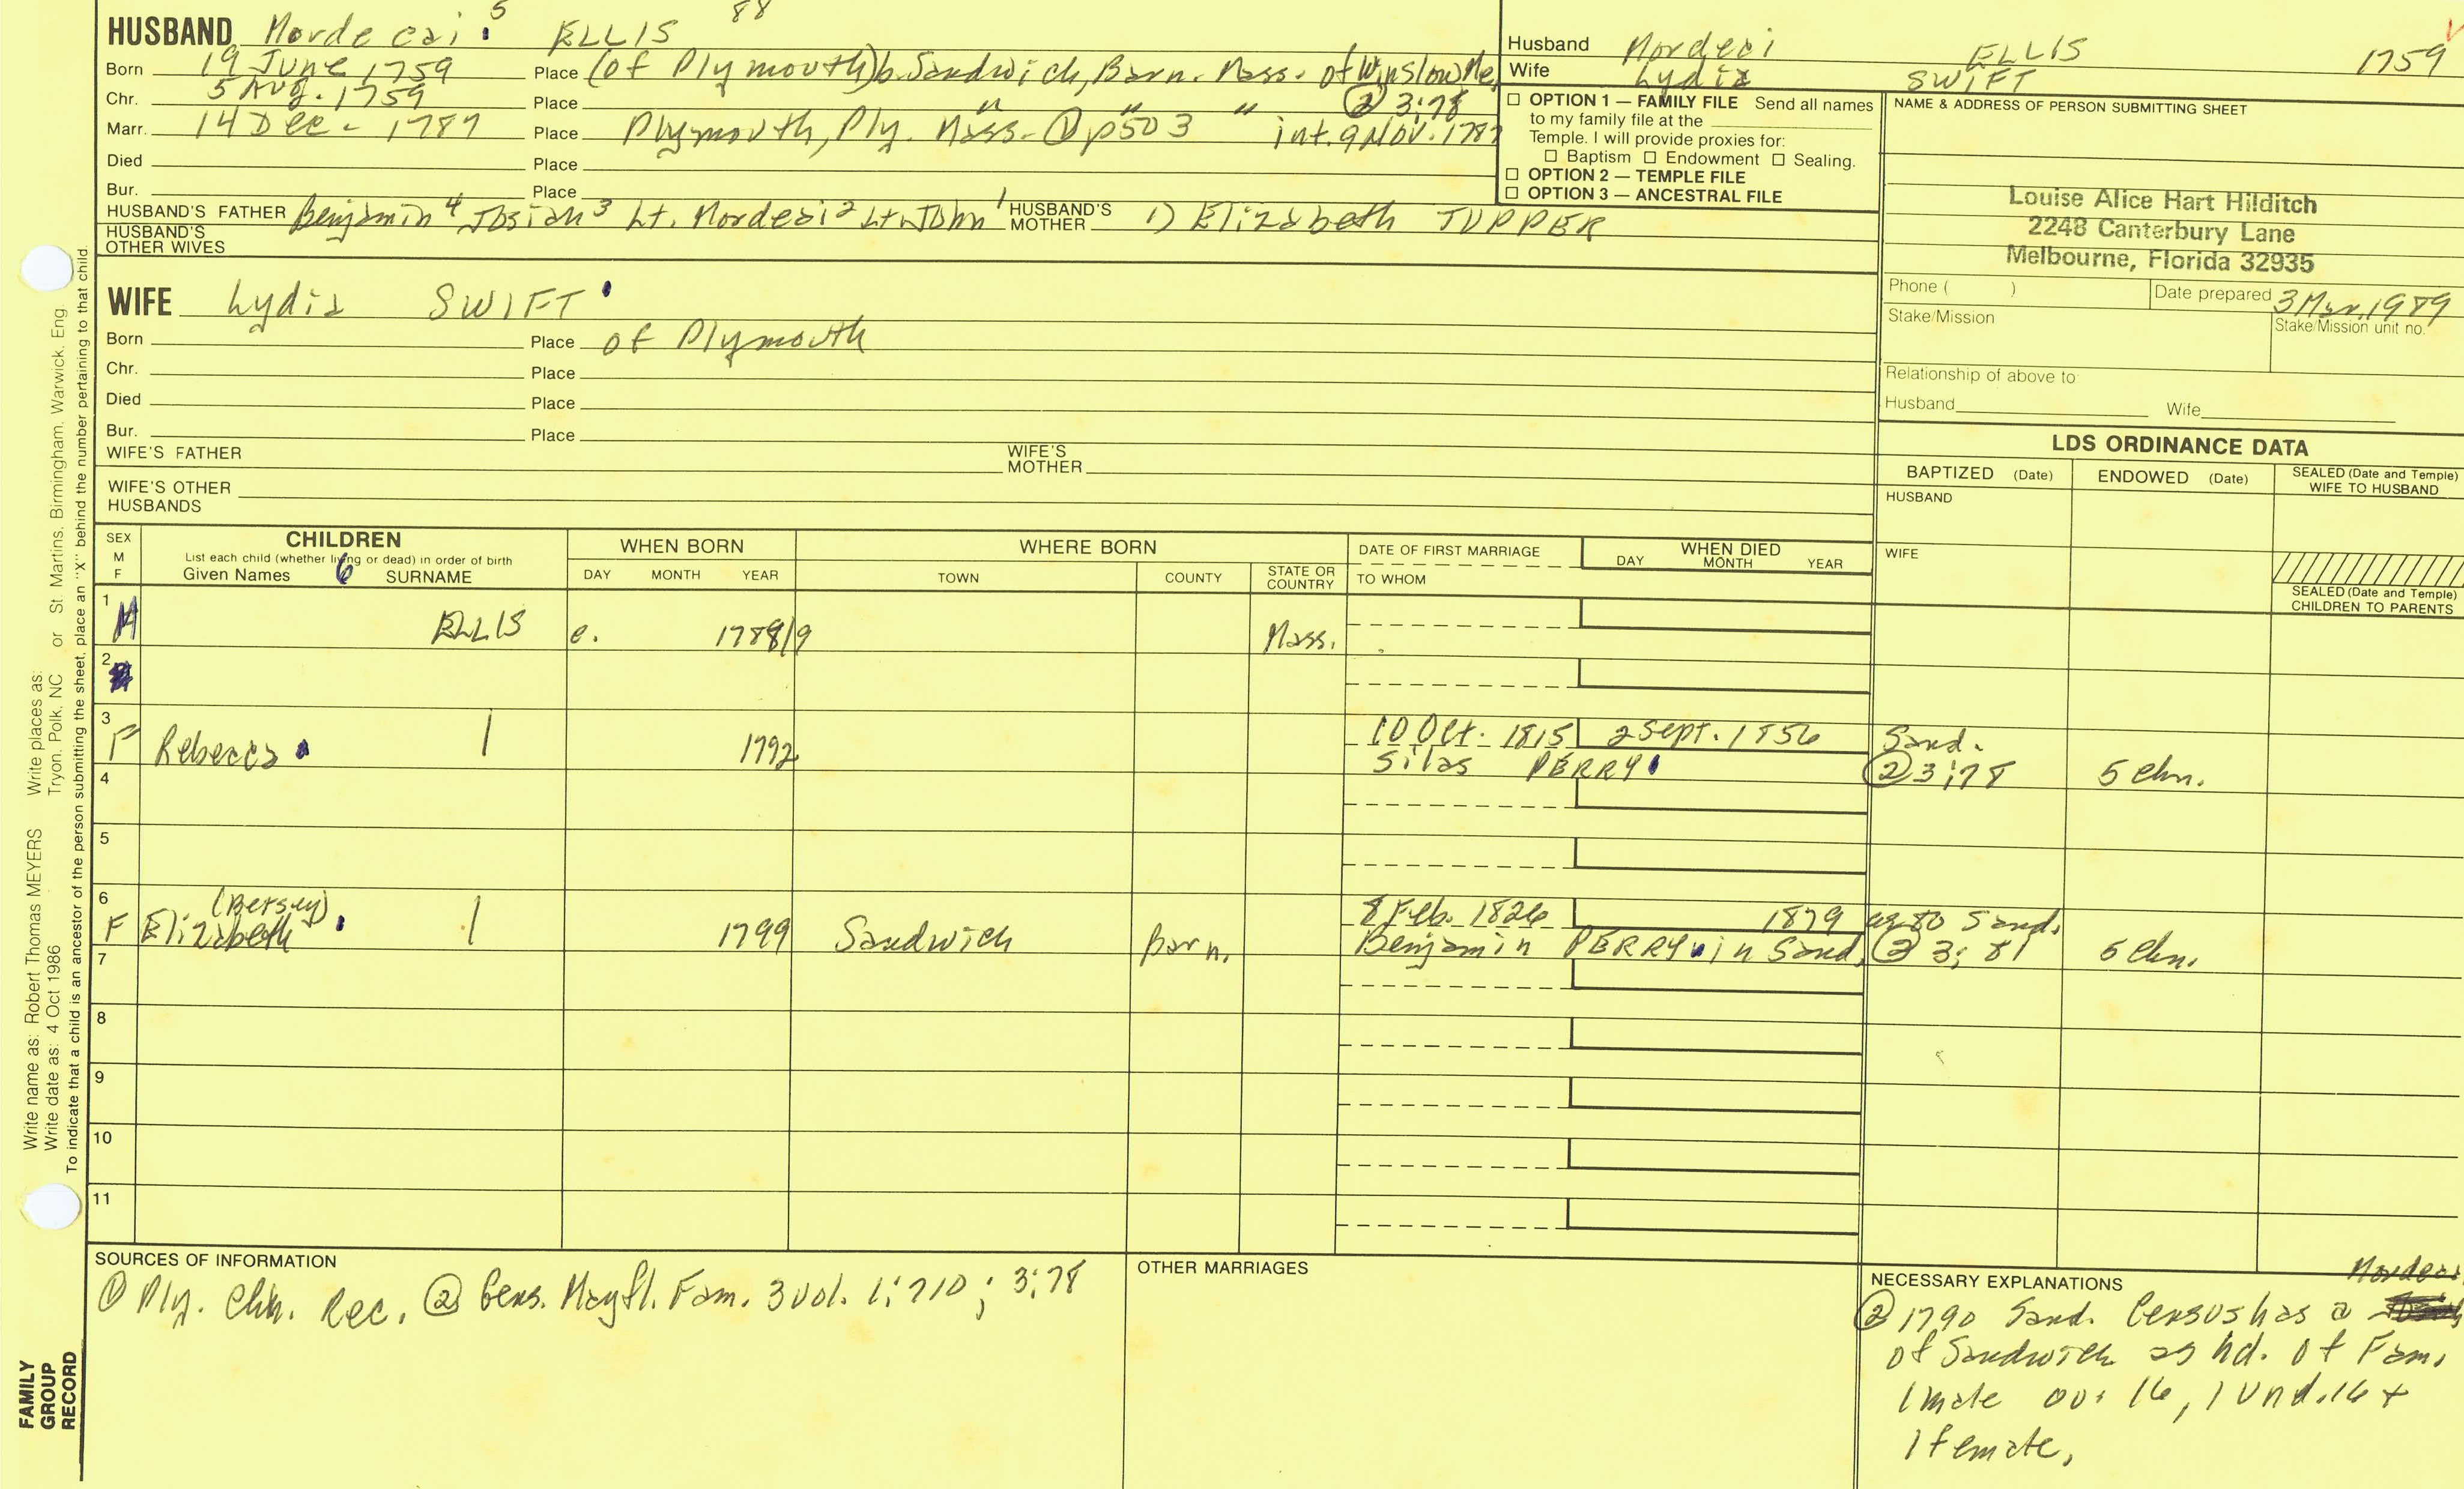 5 88
HUSBAND Mordecai ELLIS
Born 19 June 1759 Place (of Plymouth) b. Sandwich, Barn. Mass. of Winslow Me.
Chr. 5 Aug. 1759 Place " " " ② 3:78
Marr. 14 Dec. 1787 Place Plymouth, Ply. Mass. ① p503 int. 9 Nov. 1787
Died Place
Bur. Place
HUSBAND'S FATHER Benjamin 4 Josiah 3 Lt. Mordecai 2 Lt. John 1 HUSBAND'S MOTHER 1) Elizabeth TUPPER
HUSBAND'S OTHER WIVES
Husband Mordeci ELLIS 1759
Wife Lydia SWIFT
☐ OPTION 1 — FAMILY FILE Send all names
to my family file at the
Temple. I will provide proxies for:
☐ Baptism ☐ Endowment ☐ Sealing.
☐ OPTION 2 — TEMPLE FILE
☐ OPTION 3 — ANCESTRAL FILE
NAME & ADDRESS OF PERSON SUBMITTING SHEET
Louise Alice Hart Hilditch
2248 Canterbury Lane
Melbourne, Florida 32935
Phone ( ) Date prepared 3 Mar. 1989
Stake/Mission Stake/Mission unit no.
Relationship of above to
Husband Wife
WIFE Lydia SWIFT
Born Place of Plymouth
Chr. Place
Died Place
Bur. Place
WIFE'S FATHER WIFE'S MOTHER
WIFE'S OTHER HUSBANDS
LDS ORDINANCE DATA
BAPTIZED (Date) ENDOWED (Date) SEALED (Date and Temple) WIFE TO HUSBAND
HUSBAND
WIFE
SEALED (Date and Temple) CHILDREN TO PARENTS
SEX M F
CHILDREN
List each child (whether living or dead) in order of birth
Given Names 6 SURNAME
WHEN BORN
DAY MONTH YEAR
WHERE BORN
TOWN COUNTY STATE OR COUNTRY
DATE OF FIRST MARRIAGE
TO WHOM
WHEN DIED
DAY MONTH YEAR
1 M ELLIS c. 1788/9 Mass.
2
3 10 Oct. 1815 2 Sept. 1856 Sand.
F Rebecca | 1792 Silas PERRY ② 3:78 5 chn.
4
5
6 (Betsey) 8 Feb. 1826 1879 ag 80 Sand.
F Elizabeth | 1799 Sandwich Barn. Benjamin PERRY in Sand. ② 3:81 5 chn.
7
8
9
10
11
SOURCES OF INFORMATION
① Ply. Chh. Rec. ② Gens. Mayfl. Fam. 3 vol. 1:710; 3:78
OTHER MARRIAGES
NECESSARY EXPLANATIONS
Mordecai
② 1790 Sand. Census has a
of Sandwich as hd. of Fam.
1 male ov. 16, 1 und. 16 +
1 female.
Write name as: Robert Thomas MEYERS Write places as: Tryon, Polk, NC or St. Martins, Birmingham, Warwick, Eng.
Write date as: 4 Oct 1986
To indicate that a child is an ancestor of the person submitting the sheet, place an "X" behind the number pertaining to that child.
FAMILY
GROUP
RECORD